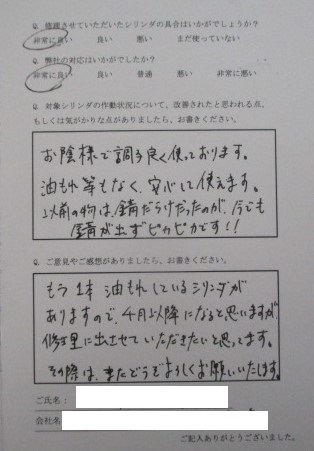 Q. 復渡させていただいたシリンダの具合はいかがでしょうか?
非常に良い 良い 悪い まだ使っていない
Q. 弊社の対応はいかがでしたか?
非常に良い 良い 普通 悪い 非常に悪い
Q. 対象シリンダの作動状況について、改善されたと思われる点、
もしくは気がかりな点がありましたら、お書きください。
お陰様で調子良く使っております。
油もれ等もなく、安心して使えます。
以前の物は、錆だらけだったのが、今でも
錆が出ずピカピカです!!
Q. ご意見やご感想がありましたら、お書きください。
もう1本油もれしているシリンダが
ありますので、4月以降になると思いますが
修理に出させていただきたいと思ってます。
その際は、またどうぞよろしくお願いいたします。
ご氏名:
会社名:
ご記入ありがとうございました。